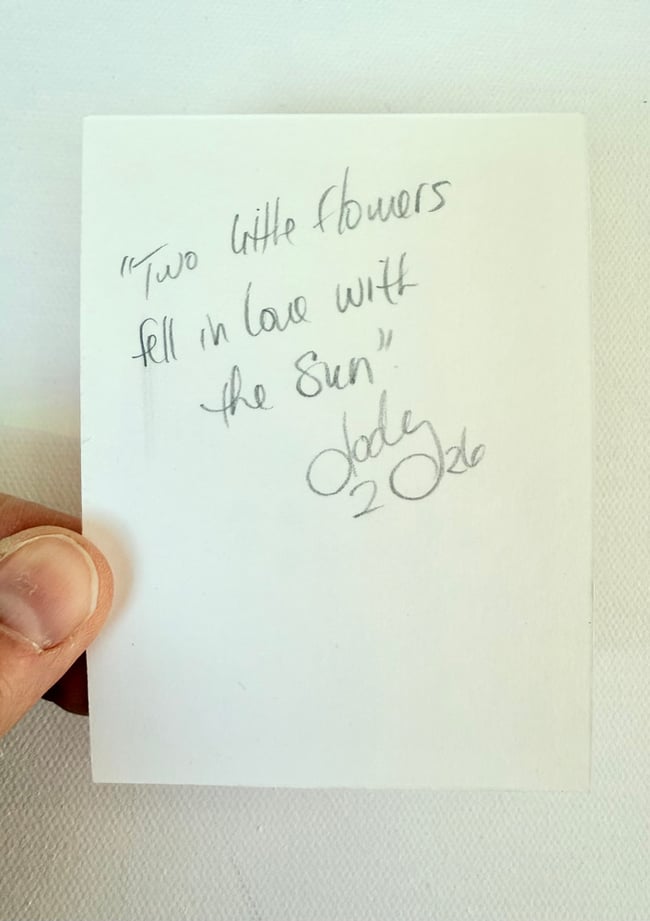 "Two little flowers
fell in love with
the Sun".
Jody
2026